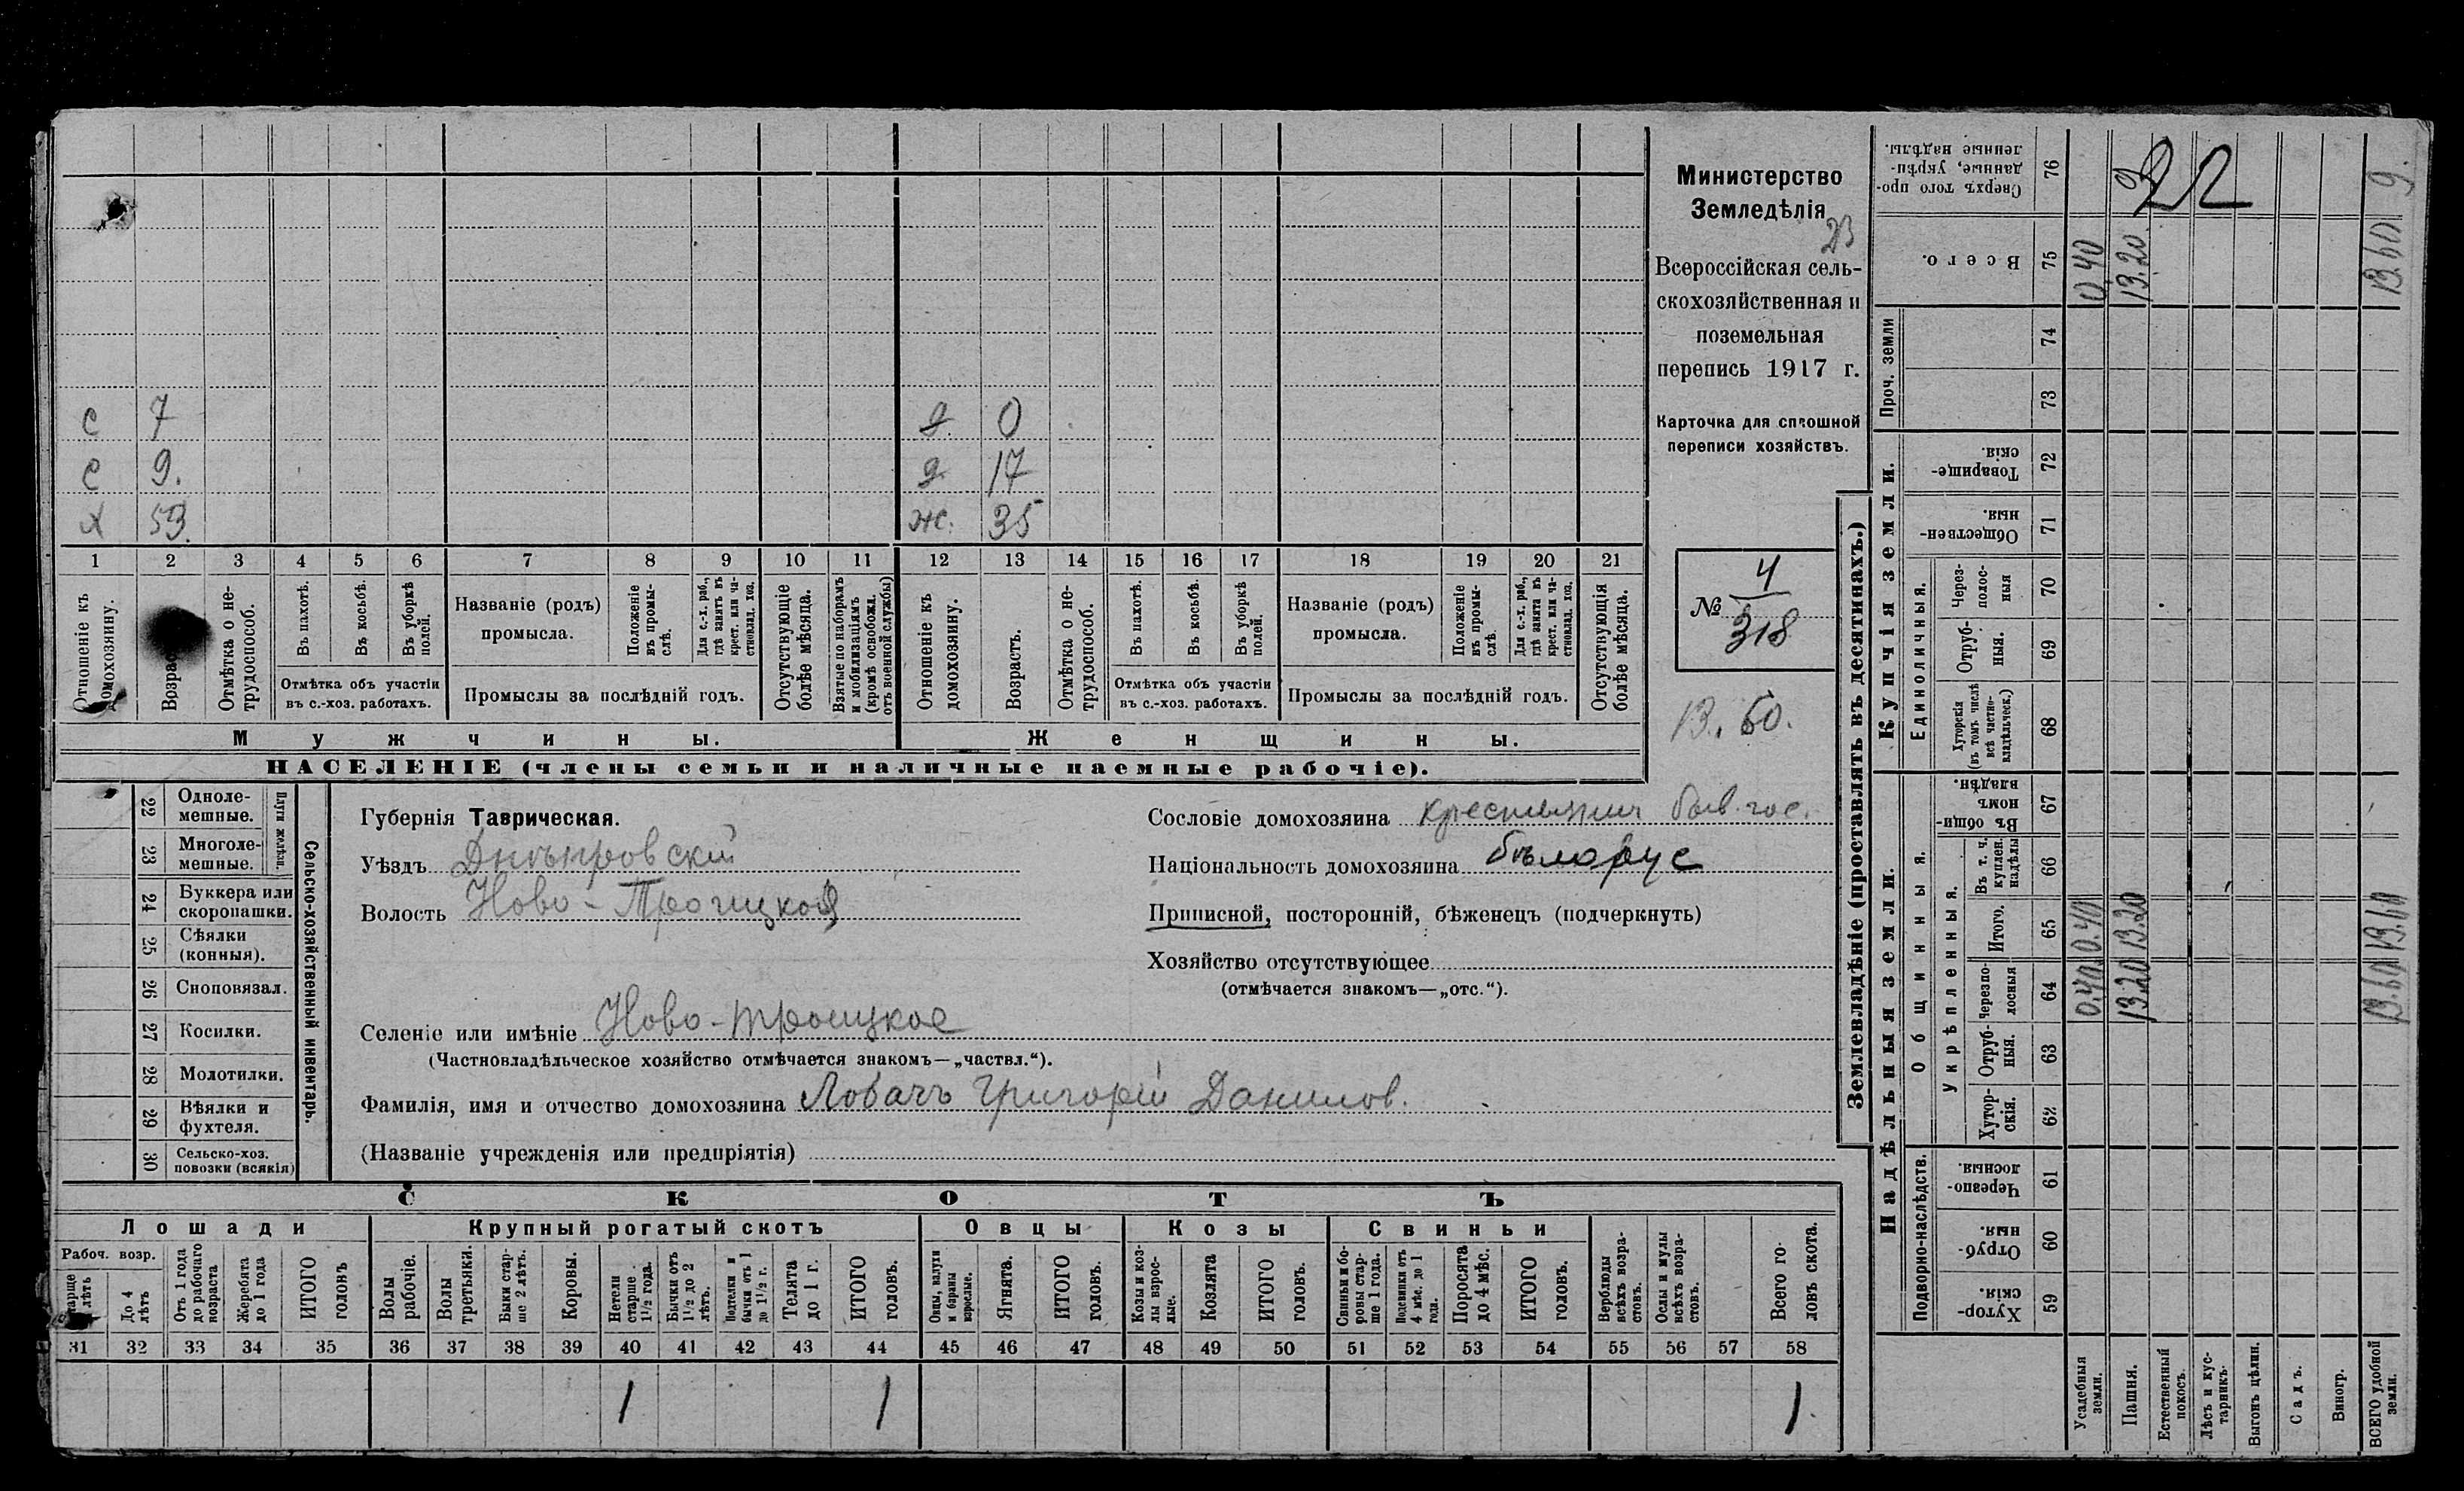 с 7 д 0
с 9. д 17
х 53. ж. 35
1 2 3 4 5 6 7 8 9 10 11 12 13 14 15 16 17 18 19 20 21
Отношеніе къ домохозяину.
Возрас
Отмѣтка о не-
трудоспособ.
Въ пахотѣ.
Въ косьбѣ.
Въ уборкѣ полей.
Отмѣтка объ участіи
въ с.-хоз. работахъ.
Названіе (родъ)
промысла.
Положеніе въ промы-
слѣ.
Для с.-х. раб., гдѣ занятъ въ крест. или ча-
стновлад. хоз.
Промыслы за послѣдній годъ.
Отсутствующіе болѣе мѣсяца.
Взятые по наборамъ и мобилизаціямъ (кромѣ освобожд. отъ военной службы)
Отношеніе къ домохозяину.
Возрастъ.
Отмѣтка о не-
трудоспособ.
Въ пахотѣ.
Въ косьбѣ.
Въ уборкѣ полей.
Отмѣтка объ участіи
въ с.-хоз. работахъ.
Названіе (родъ)
промысла.
Положеніе въ промы-
слѣ.
Для с.-х. раб., гдѣ занята въ крест. или ча-
стновлад. хоз.
Промыслы за послѣдній годъ.
Отсутствующія болѣе мѣсяца.
Мужчины.
Женщины.
НАСЕЛЕНІЕ (члены семьи и наличные наемные рабочіе).
Министерство
Земледѣлія
23
Всероссійская сель-
скохозяйственная и
поземельная
перепись 1917 г.
Карточка для сплошной
переписи хозяйствъ.
№ 4
318
13.60.
22 Одноле-
мешные.
23 Многоле-
мешные.
Плуги желѣзн.
24 Буккера или
скоропашки.
25 Сѣялки
(конныя).
26 Сноповязал.
27 Косилки.
28 Молотилки.
29 Вѣялки и
фухтеля.
30 Сельско-хоз.
повозки (всякія)
Сельско-хозяйственный инвентарь.
Губернія Таврическая.
Уѣздъ Днѣпровскій
Волость Ново-Троицкая
Селеніе или имѣніе Ново-троицкое
(Частновладѣльческое хозяйство отмѣчается знакомъ—„частвл.“).
Фамилія, имя и отчество домохозяина Ловачъ Григорій Данилов.
(Названіе учрежденія или предпріятія)
Сословіе домохозяина крестьянин быв. гос.
Національность домохозяина бѣлорус
Приписной, посторонній, бѣженецъ (подчеркнуть)
Хозяйство отсутствующее
(отмѣчается знакомъ—„отс.“).
СКОТЪ
Лошади
Крупный рогатый скотъ
Овцы
Козы
Свиньи
Рабоч. возр.
старше
4 лѣтъ
До 4
лѣтъ
Отъ 1 года
до рабочаго
возраста
Жеребята
до 1 года
ИТОГО
головъ
Волы
рабочіе.
Волы
третьяки.
Быки стар-
ше 2 лѣтъ.
Коровы.
Нетели
старше
1½ года.
Бычки отъ
1½ до 2
лѣтъ.
Подтелки и
бычки отъ 1
до 1½ г.
Телята
до 1 г.
ИТОГО
головъ.
Овцы, валухи
и бараны
взрослые.
Ягнята.
ИТОГО
головъ.
Козы и коз-
лы взрос-
лые.
Козлята
ИТОГО
головъ.
Свиньи и бо-
ровы стар-
ше 1 года.
Подсвинки отъ
4 мѣс. до 1
года.
Поросята
до 4 мѣс.
ИТОГО
головъ.
Верблюды
всѣхъ возра-
стовъ.
Ослы и мулы
всѣхъ возра-
стовъ.
Всего го-
ловъ скота.
31 32 33 34 35 36 37 38 39 40 41 42 43 44 45 46 47 48 49 50 51 52 53 54 55 56 57 58
1 1 1
Землевладѣніе (проставлять въ десятинахъ.)
Надѣльныя земли.
Купчія земли.
Проч. земли
Подворно-наслѣдств.
Общинныя.
Укрѣпленныя.
Единоличныя.
Сверхъ того про-
данные, укрѣп-
ленные надѣлы.
76
9
22
9.
Всего.
75
0.40
13.20
13.60
74
73
Товарище-
скія.
72
Обществен-
ныя.
71
Через-
полос-
ныя
70
Отруб-
ныя.
69
Хуторскія
(въ томъ числѣ
всѣ частно-
владѣльческ.)
68
Въ общи-
номъ
владѣн.
67
Въ т. ч.
куплен.
надѣлы
66
Итого.
65
0.40
13.20
13.60
Черезпо-
лосныя
64
0.40
13.20
13.60
Отруб-
ныя.
63
Хутор-
скія.
62
Черезпо-
лосныя.
61
Отруб-
ныя.
60
Хутор-
скія.
59
Усадебныя
земли.
Пашня.
Естественный
покосъ.
Лѣсъ и кус-
тарникъ.
Выгонъ цѣлин.
Садъ.
Виногр.
ВСЕГО удобной
земли.